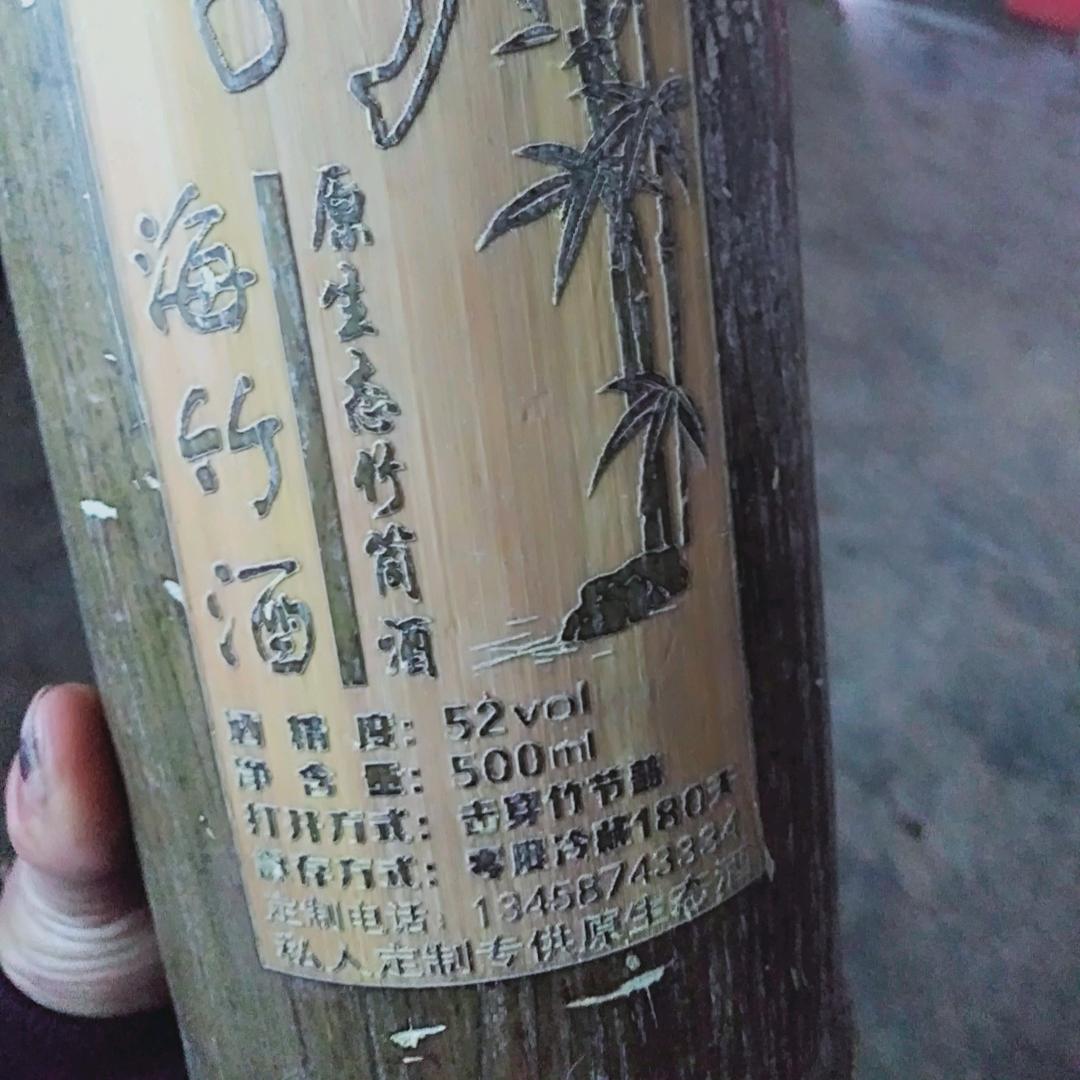 海竹酒
原生态竹筒酒
酒精度：52vol
净含量：500ml
打开方式：击穿竹节
方式：零度冷藏180天
定制电话：13458743334
私人定制专供原生态酒